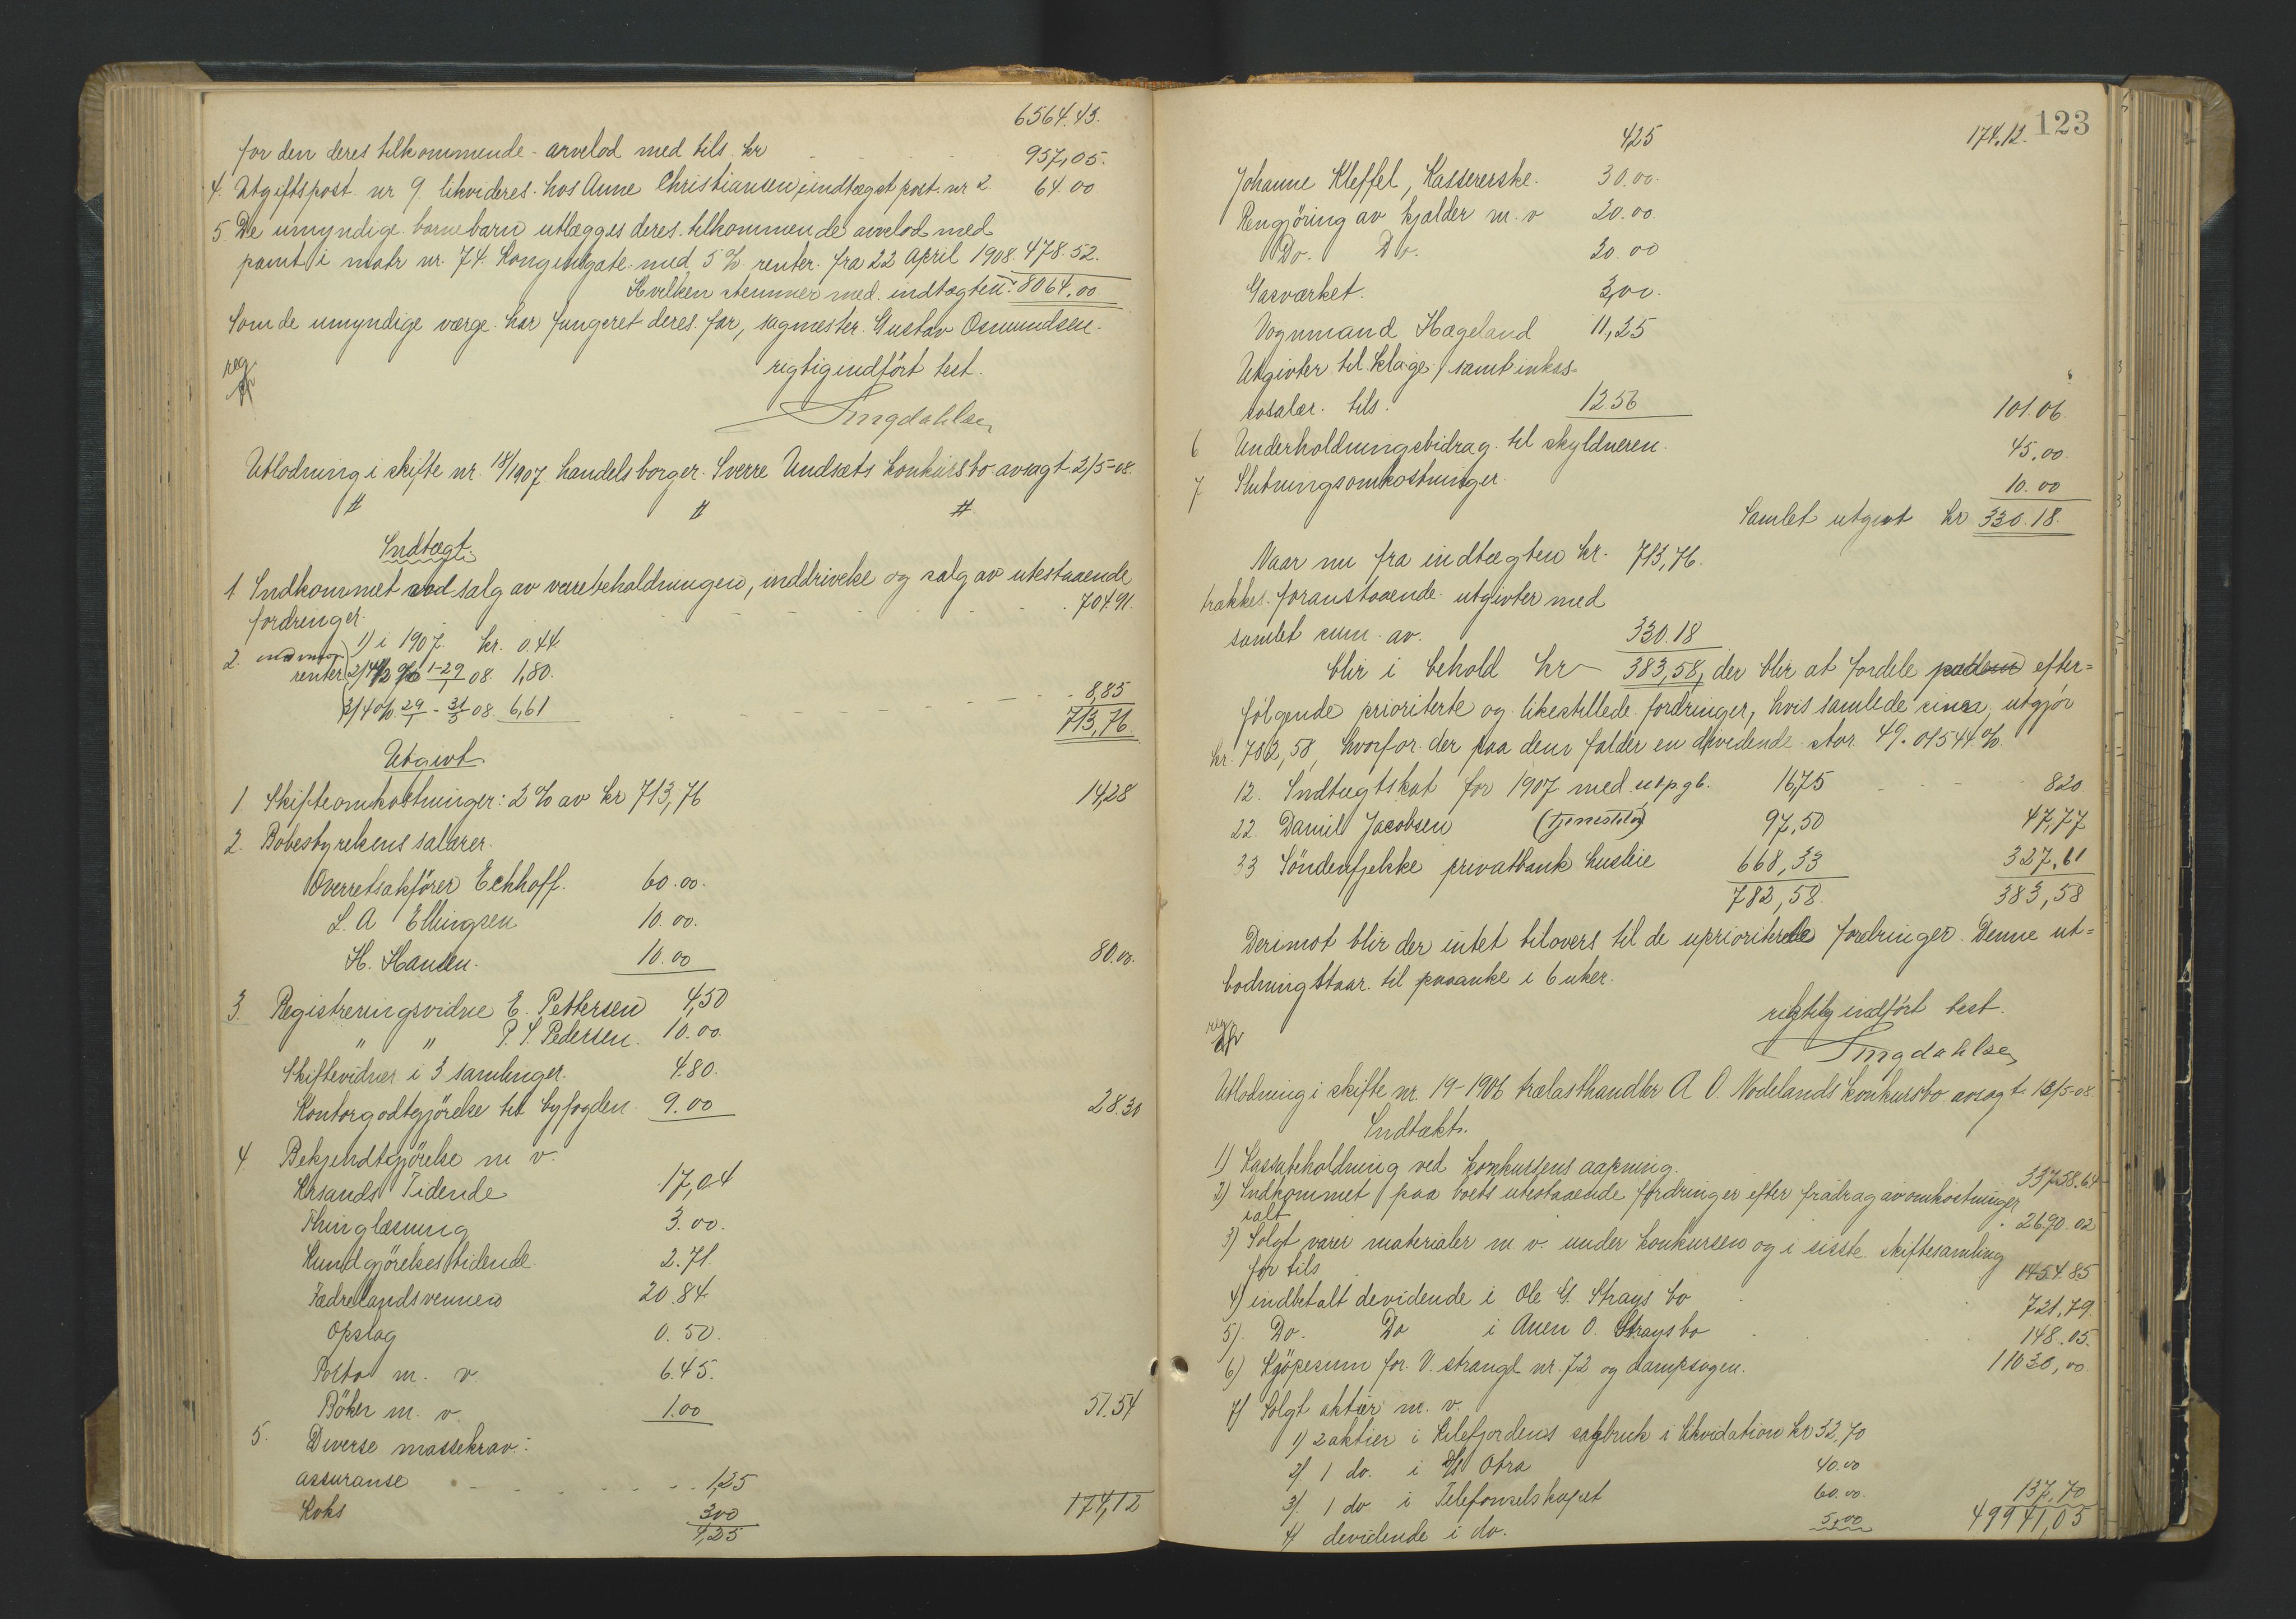 6564.43.
for den deres tilkommende arvelod med tils. kr 957,05.
4. Utgiftspost nr 9 likvideres hos Anne Christiansen, indtægst post nr 2. 64.00
5. De umyndige barnebarn utlægges deres tilkommende arvelod med
pant i matr nr. 74. Kongensgate med 5 % renter fra 22 April 1908. 478.52.
Hvilken stemmer med indtægten: 8064.00
Som de umyndige værge har fungeret deres far, sagmester Gustav Osmundsen.
reg
rigtig indført test.
Lingdahlsen
Utlodning i skifte nr. 18/1907 handelsborger Sverre Undsets konkursbo avsagt 2/5-08.
" " "
Indtægt.
1 Indkommet ved salg av varebeholdningen, inddrivelse og salg av utestaaende
fordringer. 704.91.
2. renter 1) i 1907. kr. 0.44
2) 4 1/2 % 1-29/1 08. 1,80.
3) 4 % 29/1 - 31/3 08. 6,61 8,85
713,76.
Utgivt.
1. Skifteomkostninger: 2 % av kr 713,76 14,28
2. Bobestyrelsens salærer.
Overretsakfører Eckhoff. 60.00.
L. A Ellingsen 10.00.
H. Hansen. 10.00 80.00.
3. Registreringsvidne E. Pettersen 4,50
" " P. S. Pedersen. 10.00.
Skiftevidner i 3 samlinger. 4.80.
Kontorgodtgjörelse til byfogden. 9.00 28.30
4 Bekjendtgjörelse m v.
Krsands Tidende 17,04
Thinglæsning 3.00.
Kundgjörelsestidende 2.71.
Fædrelandsvennen 20.84
Opslag 0.50.
Porto m. v 6.45.
Böker m. v. 1.00 51.54
5. Diverse massekrav:
assuranse 1,25
Koks 300 174,12
4,25
123
425 174.12.
Johanne Kleffel, Kassererske. 30.00.
Rengjöring av kjælder m. v 20.00.
Do. Do. 20.00
Gasværket. 3,00.
Vognmand Hægeland 11,25
Utgivter til klage samt inkas-
sosalær. tils. 12.56 101.06.
6 Underholdningsbidrag til skyldneren. 45.00.
7 Slutningsomkostninger. 10.00
Samlet utgivt kr 330.18.
Naar nu fra indtægten kr. 713,76.
trækkes foranstaaende utgivter med
samlet sum av. 330.18
blir i behold kr 383,58, der blir at fordele paa dem efter-
følgende prioriterte og likestillede fordringer, hvis samlede sum utgjør
kr. 782,58, hvorfor der paa dem falder en devidende stor 49.01544 %
12. Indtægtskat for 1907 med utpgb. 16,75 820
22 Daniel Jacobsen (tjenestelön) 97,50 47,77
33 Söndenfjelske privatbank husleie 668,33 327.61
782,58. 383,58
Derimot blir der intet tilovers til de uprioriterte fordringer. Denne ut-
lodning staar til paaanke i 6 uker.
rigtig indfört test.
reg
Lingdahlsen
Utlodning i skifte nr. 19-1906 trælasthandler A. O. Nodelands konkursbo avsagt 12/5-08.
Indtækt.
1) Kassabeholdning ved konkursens aapning. 33758.64
2) Indkommet paa boets utestaaende fordringer efter fradrag av omkostninger
ialt 2690.02
3) Solgt varer materialer m. v. under konkursen og i sisste skiftesamling
for tils 1454.85
4) indbetalt devidende i Ole G. Strays bo 721,79.
5). Do. Do i Auen O. Strays bo 148.05.
6) Kjöpesum for V. strangt nr. 72 og dampsagen. 11030,00
7) Solgt aktier m. v.
1) 2 aktier i Kilefjordens sagbruk i likvidation kr 32,70
2). 1 do. i D/S Otra 40.00
3). 1 do i Telefonselskapet 60.00. 137,70
4) devidende i do. 5,00 49941,05